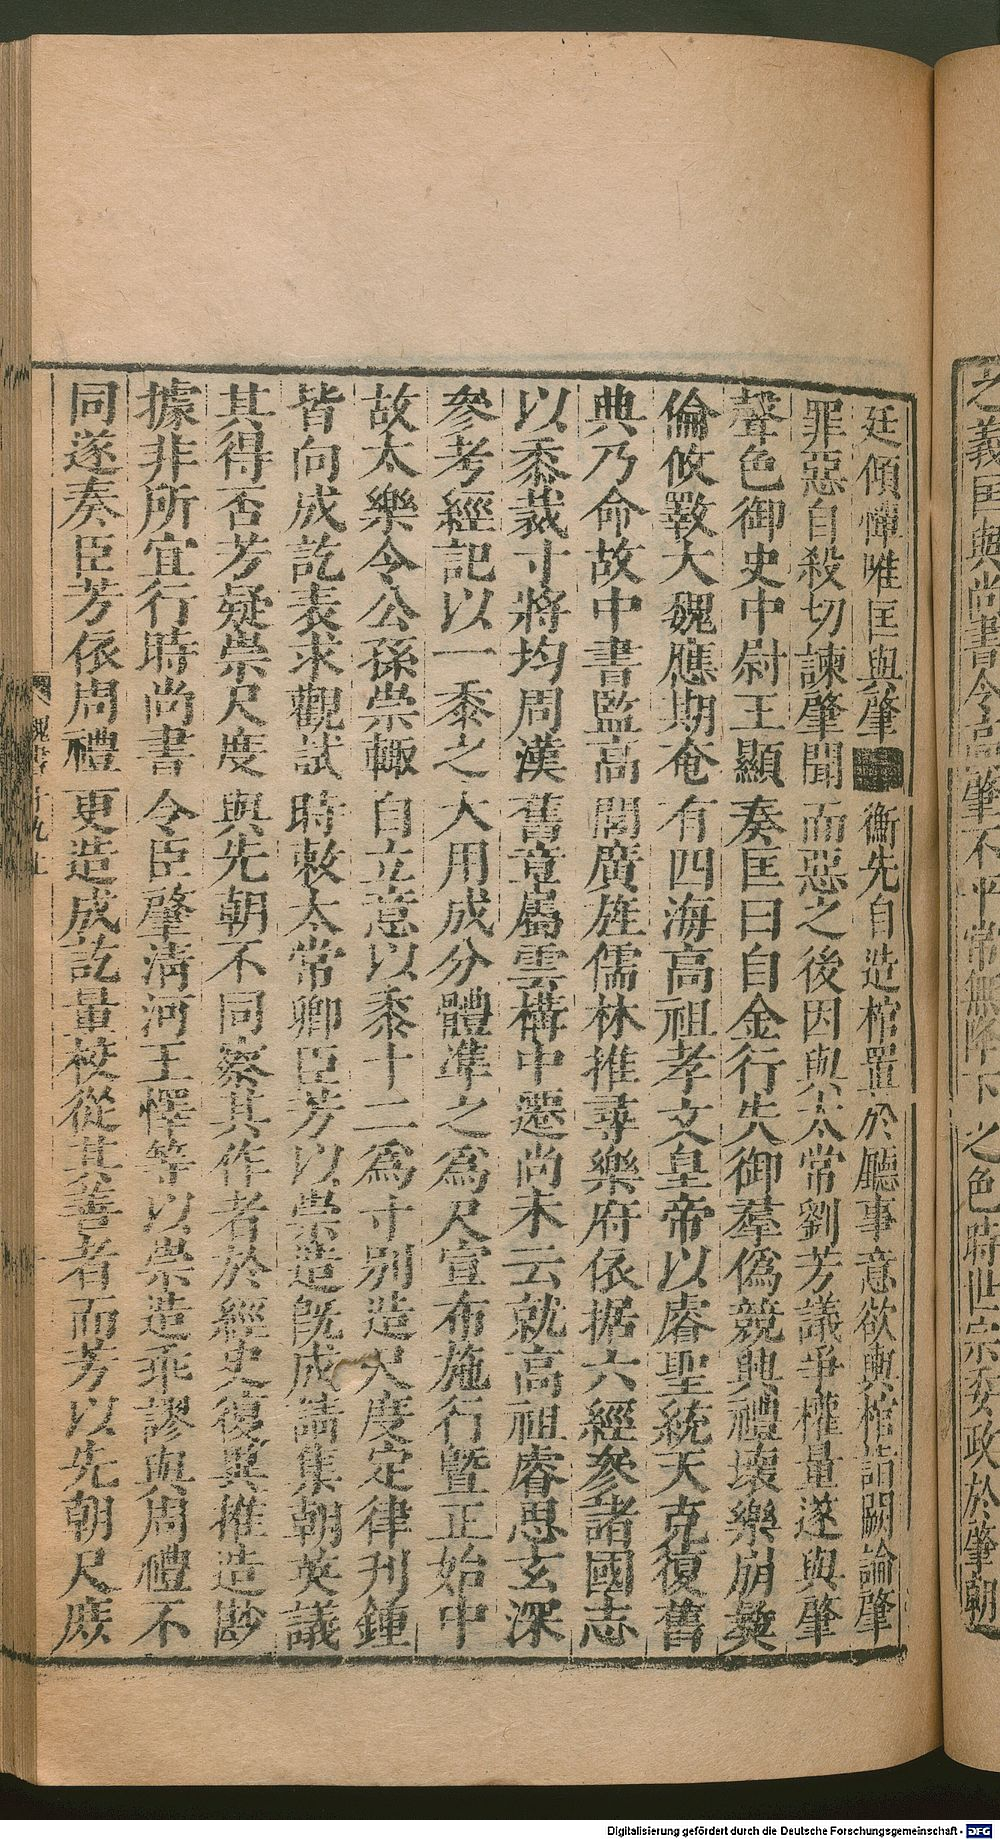 之義匡與尚書令高肇不平常無降下之色時世宗委政於肇朝
廷傾憚唯匡與肇衡先自造棺置於廳事意欲輿棺詣闕論肇
罪惡自殺切諫肇聞而惡之後因與太常劉芳議爭權量遂與肇
聲色御史中尉王顯奏匡曰自金行失御羣僞競興禮壞樂崩彝
倫攸斁大魏應期奄有四海高祖孝文皇帝以睿聖統天克復舊
典乃命故中書監高閭廣旌儒林推尋樂府依据六經參諸國志
以黍裁寸將均周漢舊章屬雲構中遷尚未云就高祖睿思玄深
參考經記以一黍之大用成分體準之爲尺宣布施行曁正始中
故太樂令公孫崇輙自立意以黍十二爲寸別造尺度定律刋鍾
皆向成訖表求觀試時敕太常卿臣芳以崇造旣成請集朝英議
其得否芳疑崇尺度與先朝不同察其作者於經史復異推造尠
據非所宜行時尚書令臣肇淸河王懌等以崇造乖謬與周禮不
同遂奏臣芳依周禮更造成訖量校從其善者而芳以先朝尺度
魏書十九上
Digitalisierung gefördert durch die Deutsche Forschungsgemeinschaft - DFG